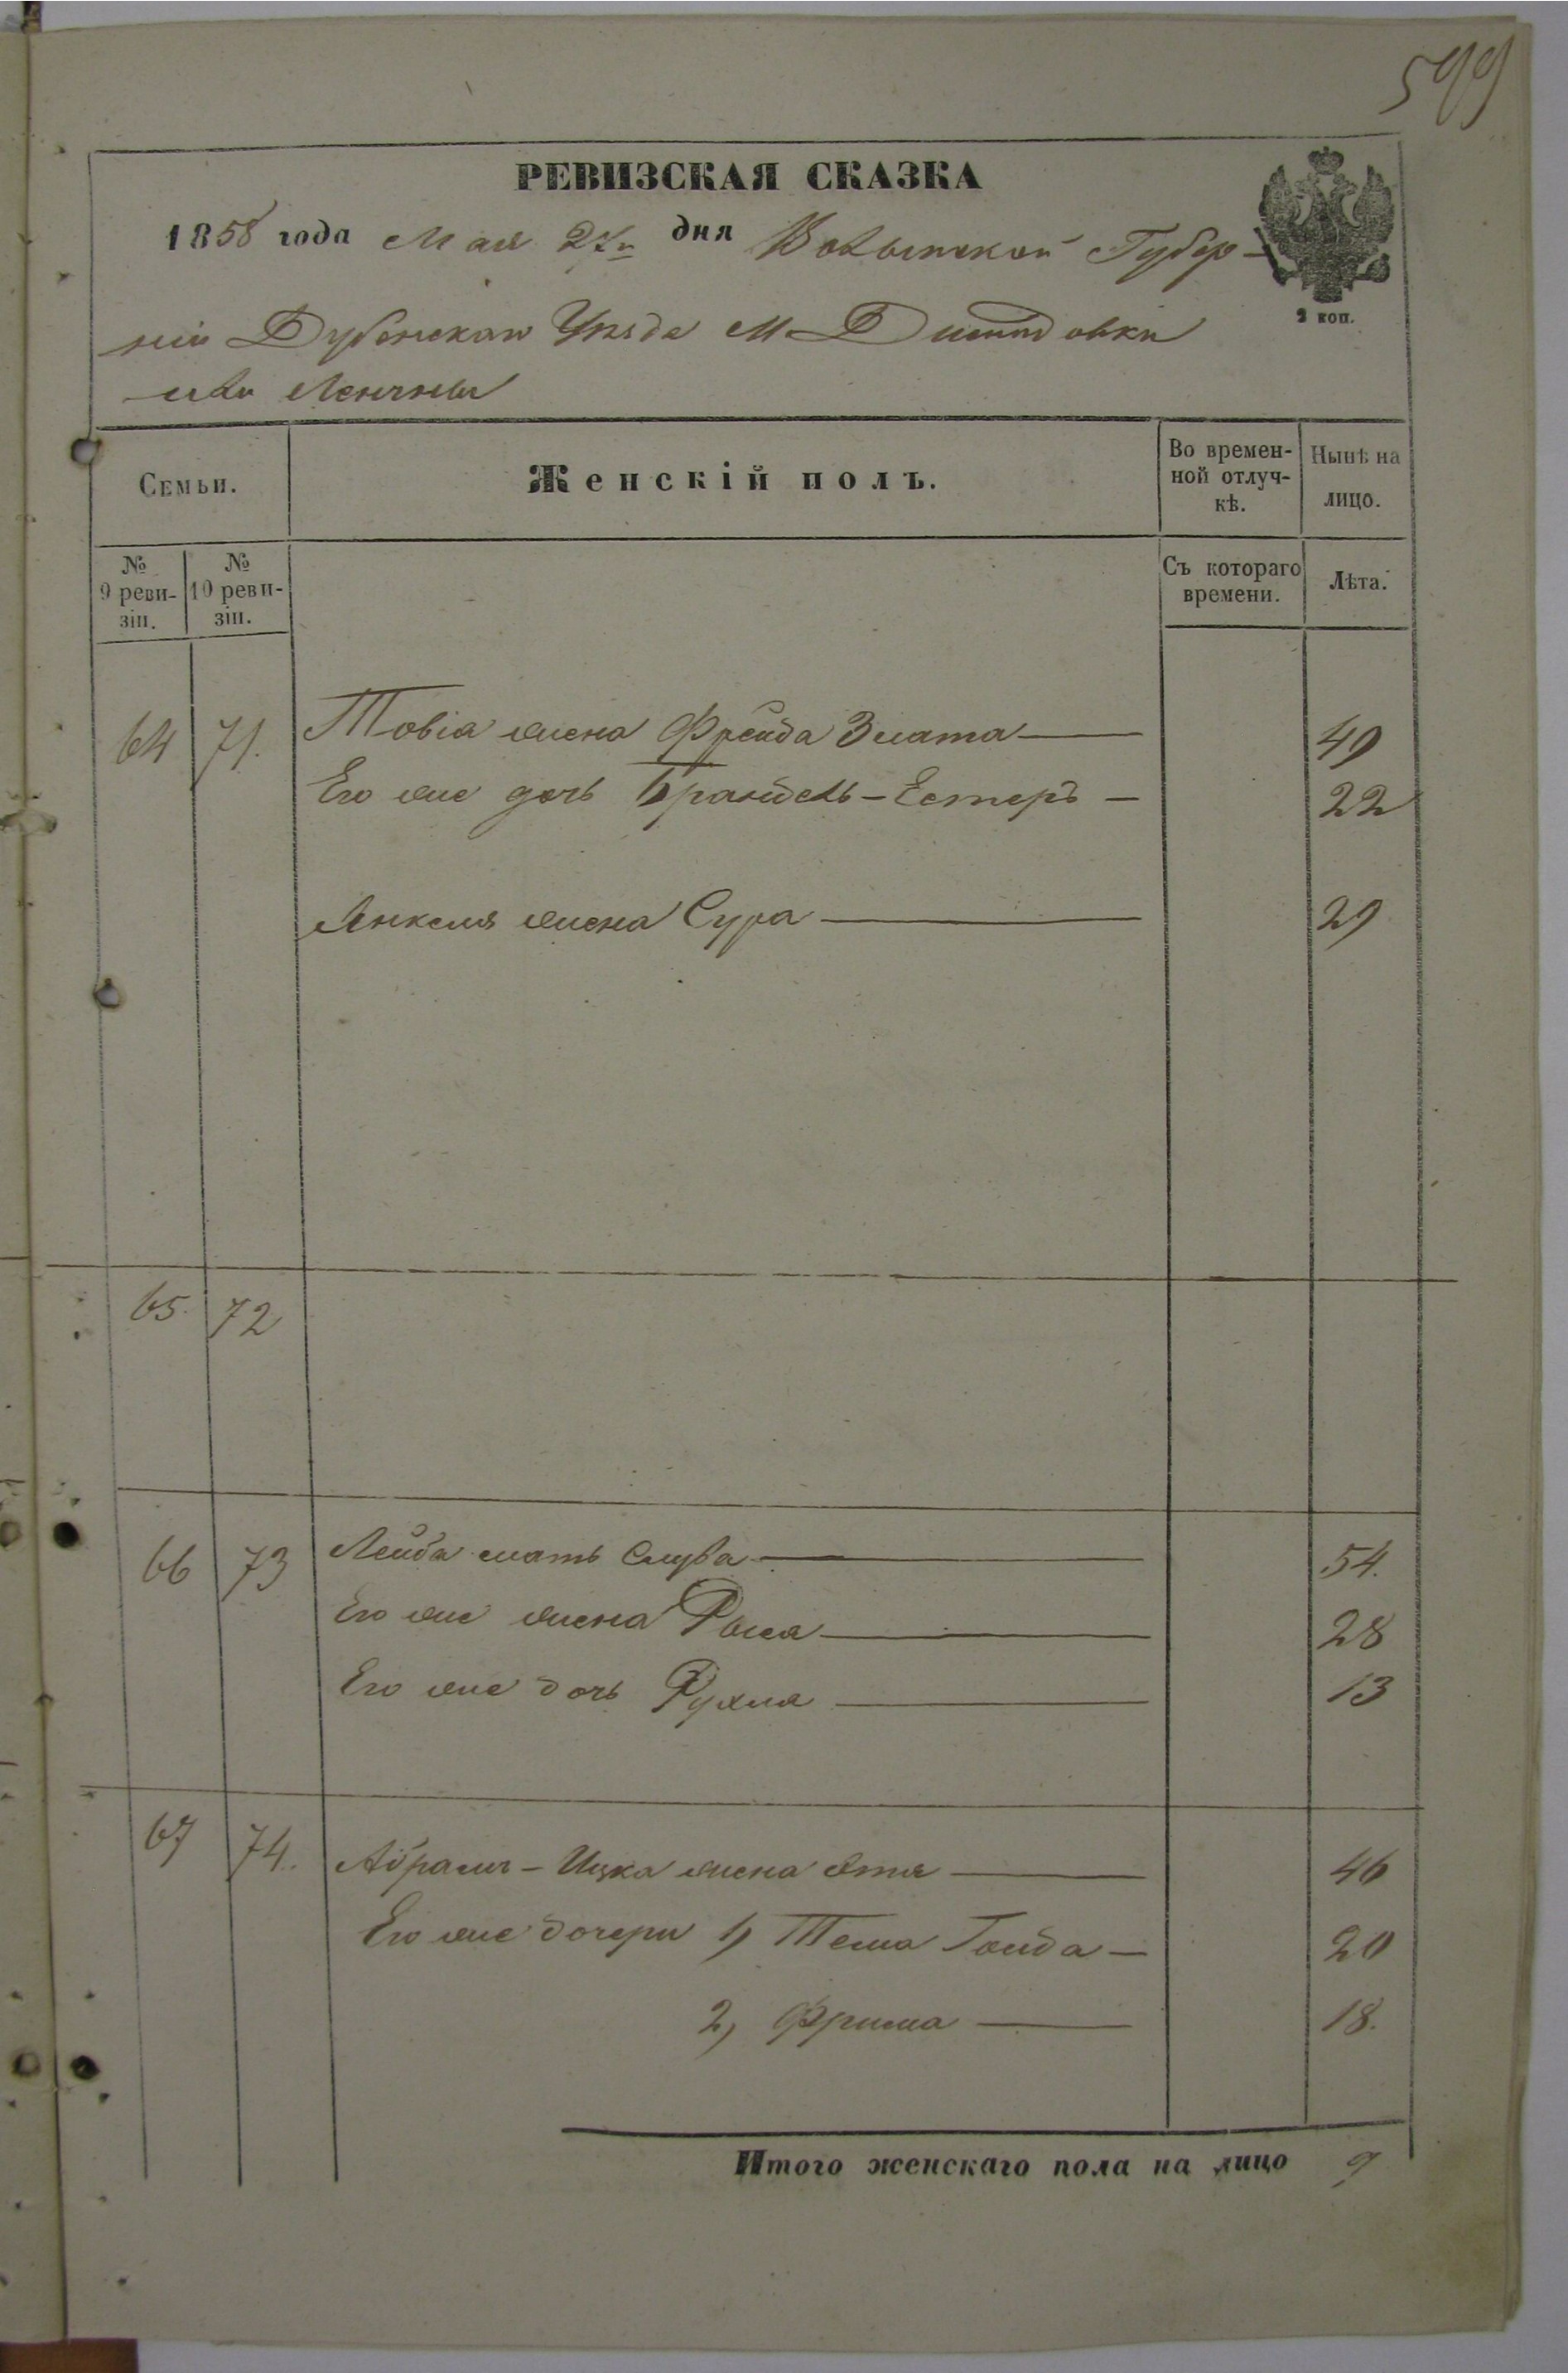 599
РЕВИЗСКАЯ СКАЗКА
1858 года Мая 27го дня Волынской Губер-
2 коп.
ніи Дубенскаго Уѣзда М.
или
Семьи.
Женскій полъ.
Во времен-
ной отлуч-
кѣ.
Нынѣ на
лицо.
№
9 реви-
зіи.
№
10 реви-
зіи.
Съ котораго
времени.
Лѣта.
64 71. Товіа жена Фрейда Злата — 49
Его же дочь Брандель-Естеръ — 22
Янкеля жена Сура — 29
65. 72
66 73 Лейба мать Слува — 54.
Его же жена — 28
Его же дочь Рухля — 13
67 74. Абрамъ-Ицка жена Этя — 46
Его же дочери 1, Тема Гольда — 20
2, Фрима — 18.
Итого женскаго пола на лицо 9